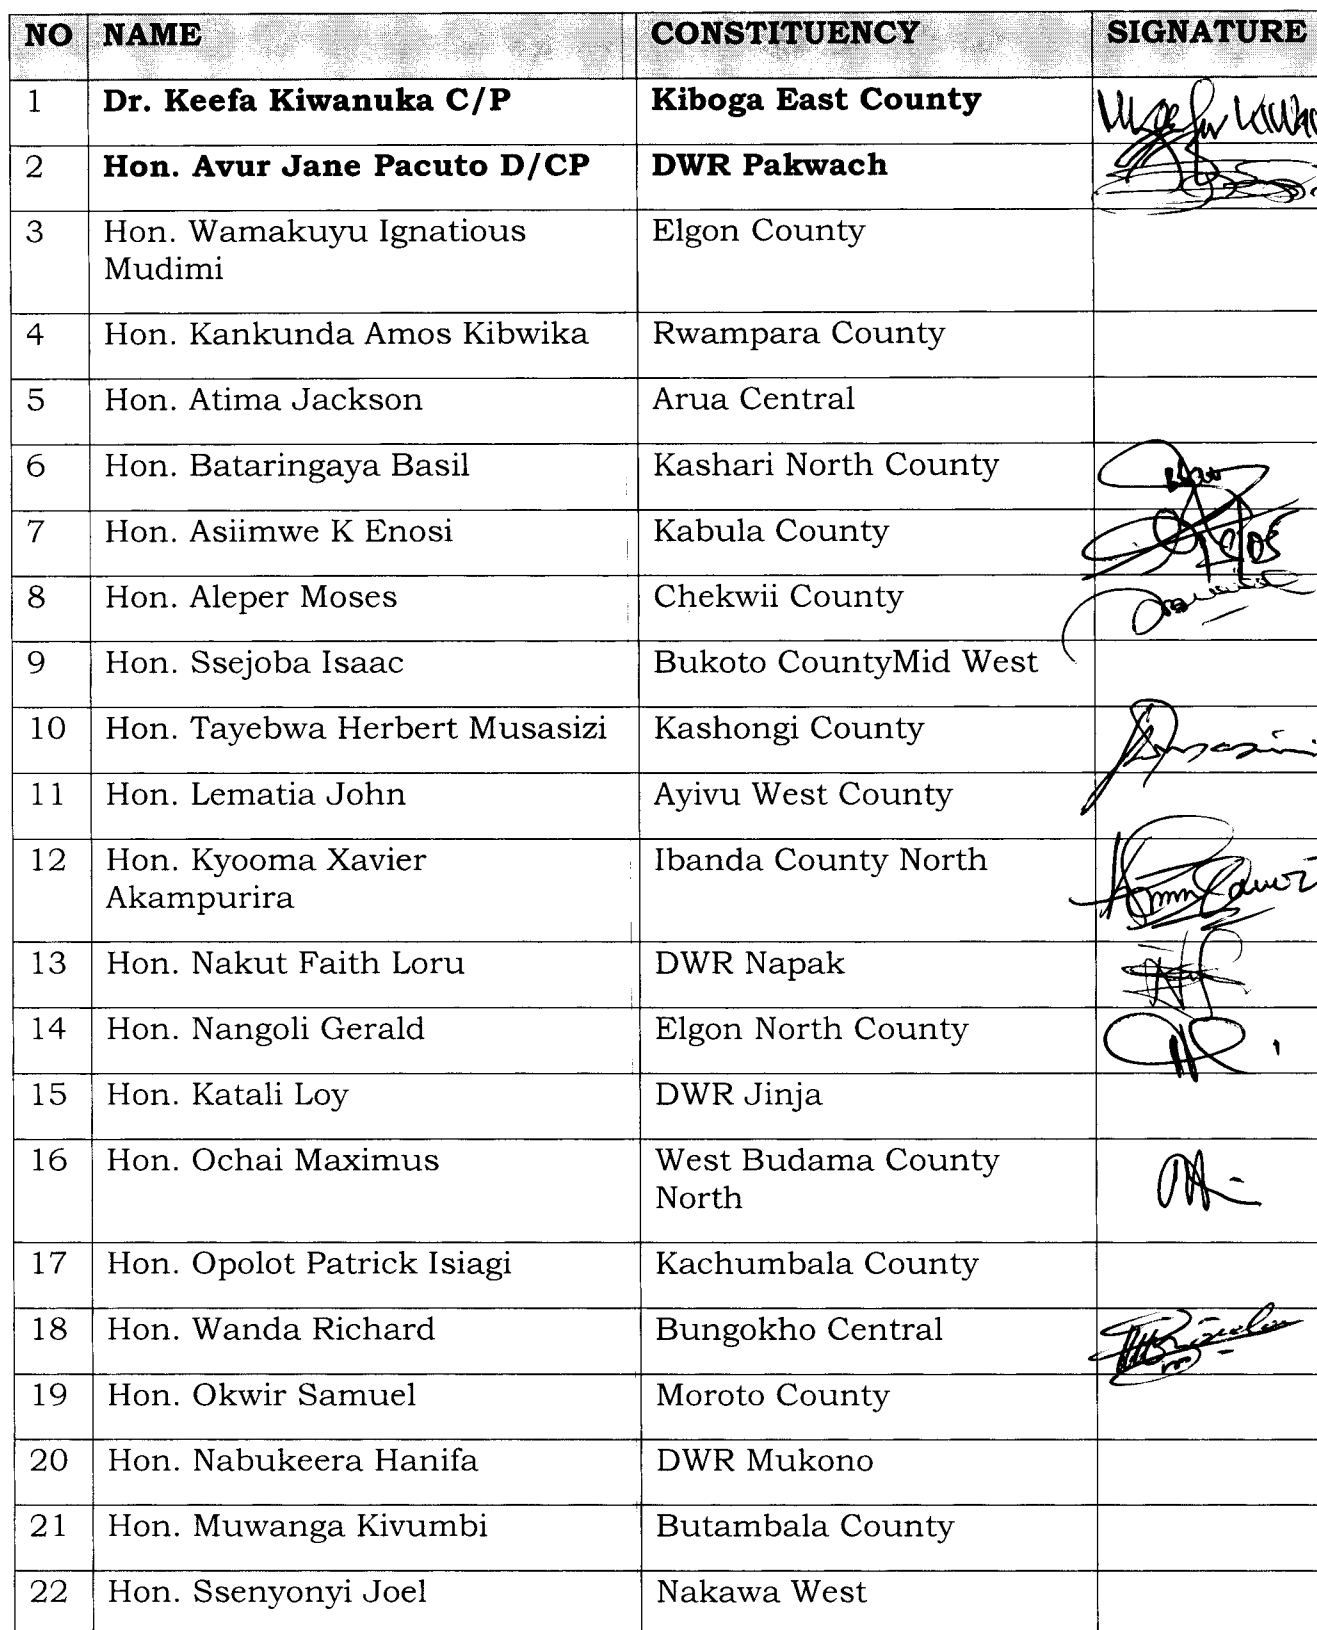 NO NAME CONSTITUENCY SIGNATURE
1 Dr. Keefa Kiwanuka C/P Kiboga East County
2 Hon. Avur Jane Pacuto D/CP DWR Pakwach
3 Hon. Wamakuyu Ignatious Elgon County
Mudimi
4 Hon. Kankunda Amos Kibwika Rwampara County
5 Hon. Atima Jackson Arua Central
6 Hon. Bataringaya Basil Kashari North County
7 Hon. Asiimwe K Enosi Kabula County
8 Hon. Aleper Moses Chekwii County
9 Hon. Ssejoba Isaac Bukoto CountyMid West
10 Hon. Tayebwa Herbert Musasizi Kashongi County
11 Hon. Lematia John Ayivu West County
12 Hon. Kyooma Xavier Ibanda County North
Akampurira
13 Hon. Nakut Faith Loru DWR Napak
14 Hon. Nangoli Gerald Elgon North County
15 Hon. Katali Loy DWR Jinja
16 Hon. Ochai Maximus West Budama County
North
17 Hon. Opolot Patrick Isiagi Kachumbala County
18 Hon. Wanda Richard Bungokho Central
19 Hon. Okwir Samuel Moroto County
20 Hon. Nabukeera Hanifa DWR Mukono
21 Hon. Muwanga Kivumbi Butambala County
22 Hon. Ssenyonyi Joel Nakawa West